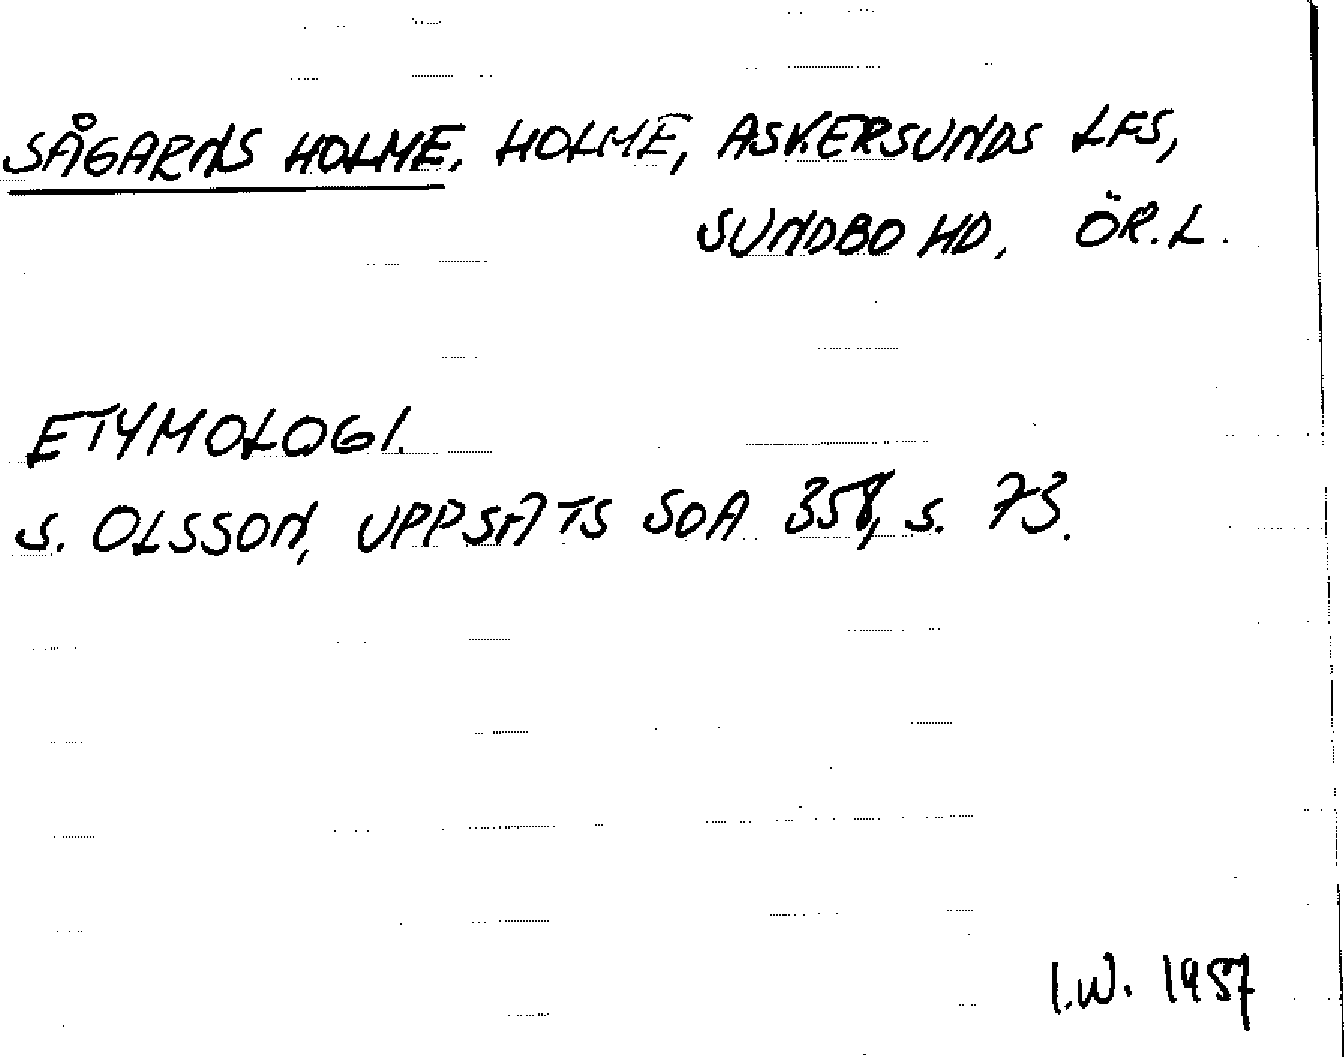 SÅGARNS HOLME. HOLME, ASKERSUNDS LFS,
SUNDBO HD, ÖR.L.
ETYMOLOGI.
S. OLSSON, UPPSATS SOA 358, s. 73.
I.W. 1987